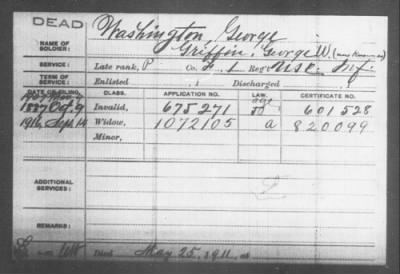 DEAD
Washington, George
NAME OF SOLDIER:
Griffin, George W.
SERVICE:
Late rank, P Co. I, Reg't U.S.C. Inf.
TERM OF SERVICE:
Enlisted , Discharged ,
DATE OF FILING. CLASS. APPLICATION NO. LAW. CERTIFICATE NO.
1887 Oct. 9 Invalid, 675271 601528
1916, Sept. 14 Widow, 1072105 a 820099
Minor,
ADDITIONAL SERVICES:
REMARKS:
Died May 25, 1911, at